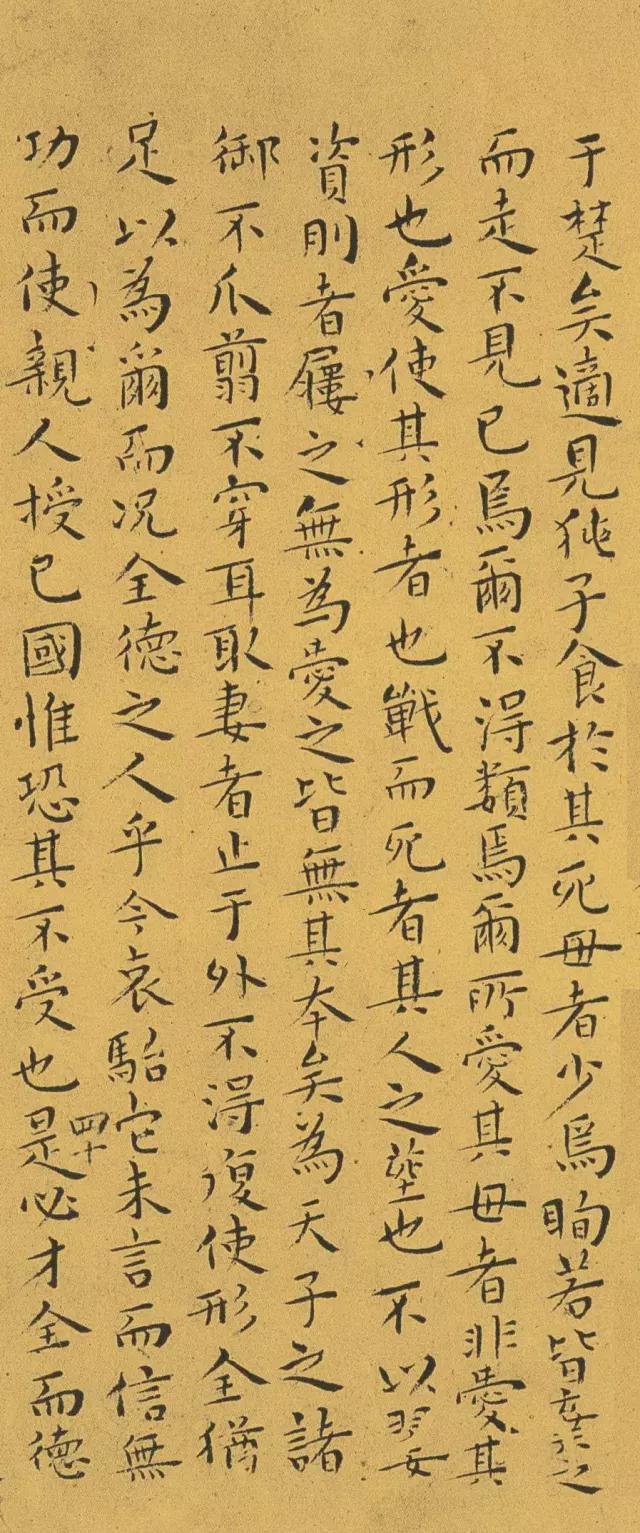 于楚矣適見㹠子食於其死母者少焉眴若皆棄之
而走不見己焉爾不得類焉爾所愛其母者非愛其
形也愛使其形者也戰而死者其人之塟也不以翣
資刖者屨之無為愛之皆無其本矣為天子之諸
御不爪翦不穿耳取妻者止于外不得復使形全猶
足以為爾而况全德之人乎今哀駘它未言而信無
功而使親人授己國惟恐其不受也是必才全而德
四十